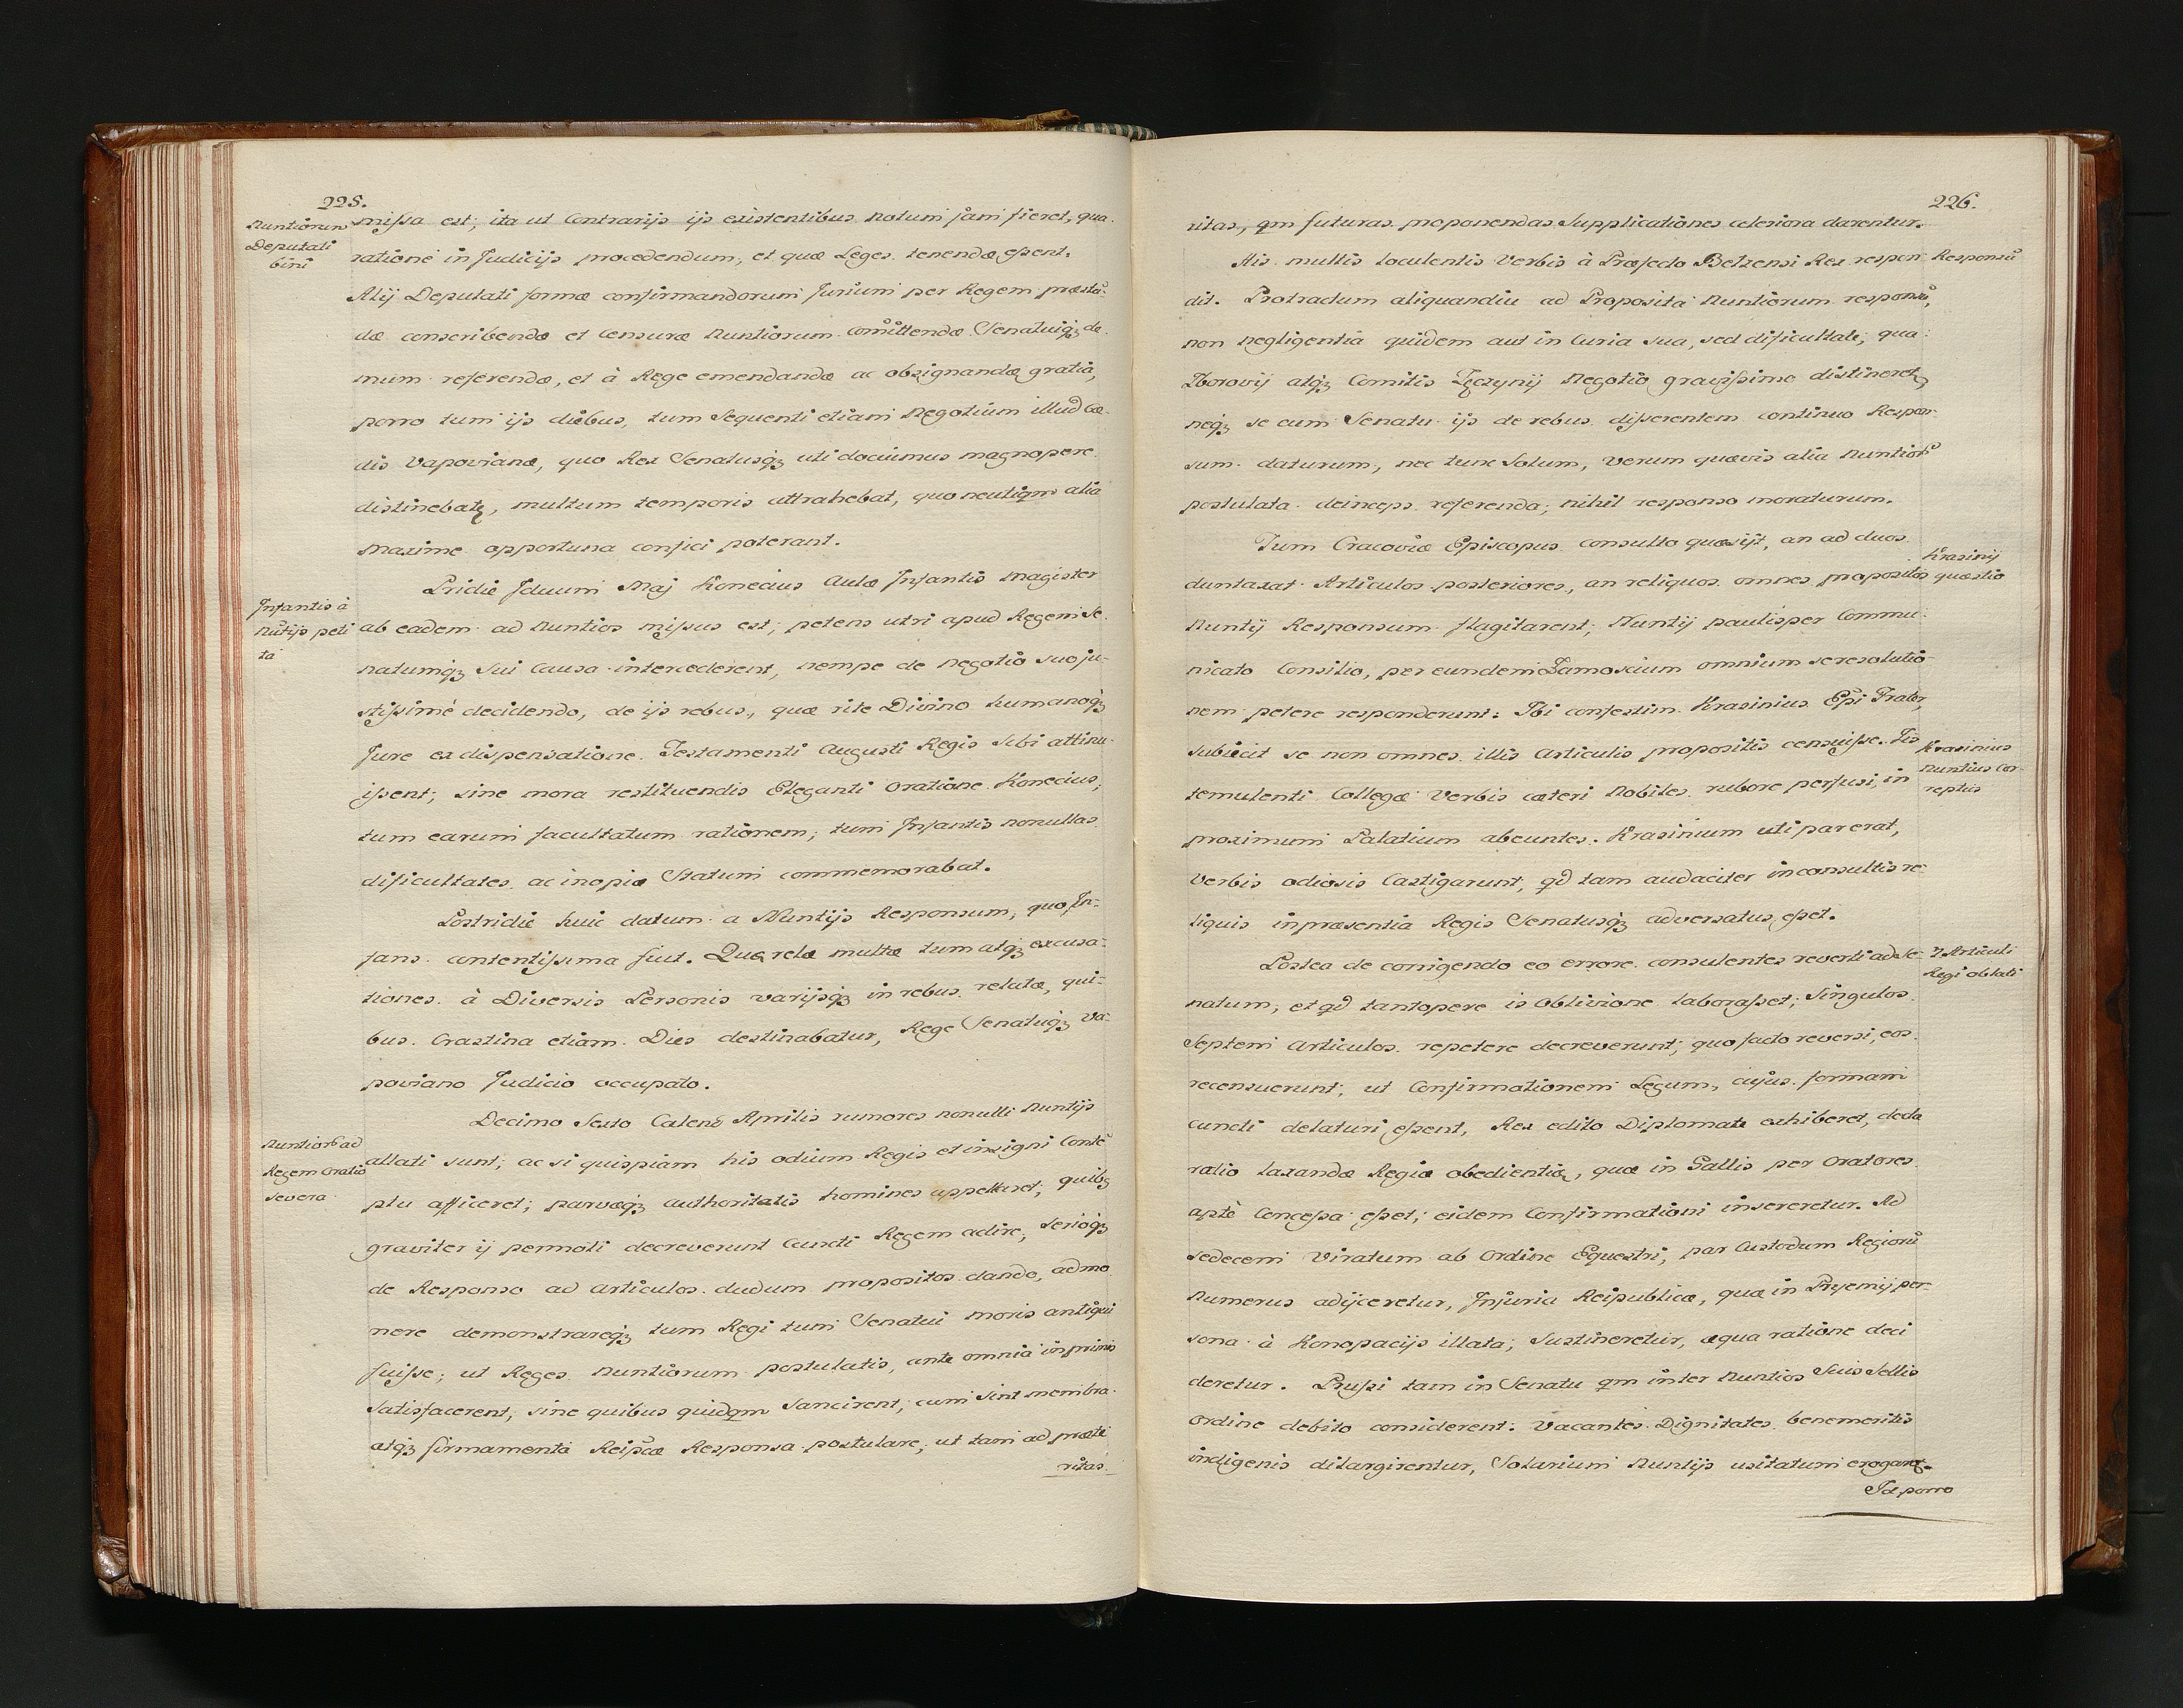 225.
Nuntiorum
Deputati
bini
missa est; ita ut Contrarijs ijs existentibus notum jam fieret, qua
ratione in Judicijs procedendum, et quæ Leges tenendæ essent.
Alij Deputati formæ confirmandorum Jurium per Regem præstã-
dæ conscribendæ et Censuræ Nuntiorum Comittendæ Senatuiqꝫ de-
mum referendæ, et à Rege emendandæ ac obsignandæ gratiâ,
porro tum ijs diebus, tum Sequenti etiam Negotium illud cæ-
dis Vapovianæ, quo Rex Senatusqꝫ uti docuimus magnopere
distinebatʒ, multum temporis attrahebat, quo neutiqm alia
maxime opportuna confici poterant.
Infantis à
Nũtijs peti
ta
Pridie Iduum Maj Konecius Aulæ Infantis Magister
ab eadem ad Nuntios missus est; petens utri apud Regem Se-
natumqꝫ Sui Causa intercederent, nempe de negotio suo ju-
stissimè decidendo, de ijs rebus, quæ rite Divino humanoqꝫ
Jure ex dispensatione Testamenti Augusti Regis sibi attinu-
issent; sine mora restituendis Eleganti Oratione Konecius,
tum earum facultatum rationem; tum Infantis nonullas
dificultates ac inopiæ Statum commemorabat.
Postridie huic datum a Nuntijs Responsum, quo In-
fans contentissima fuit. Querelæ multæ tum atqꝫ excusa-
tiones à Diversis Personis varijsqꝫ in rebus relatæ, qui-
bus Crastina etiam Dies destinabatur, Rege Senatuqꝫ Va-
poviano Judicio occupato.
Nuntiorũ ad
Regem Oratio
Severa
Decimo Sexto Calend Aprilis rumores nonulli Nuntijs
allati sunt; ac si quispiam his odium Regis et insigni Contẽ
ptu afficeret; parvæqꝫ authoritatis homines appellaret; quibꝫ
graviter ij permoti decreverunt Cuncti Regem adire, serioqꝫ
de Responso ad articulos dudum propositos dando, admo
nere demonstrareqꝫ tum Regi tum Senatui moris antiqui
fuisse; ut Reges Nuntiorum postulatis, ante omnia inprimis
Satisfacerent; sine quibus quidqm Sancirent; cum sint membra
atqꝫ firmamenta Reipcæ Responsa postulare, ut tam ad præte
ritas
226.
ritas, qm futuras proponendas Supplicationes celeriora darentur.
Responsũ
His multis loculentis Verbis à Præfecto Betzensi Rex respon-
dit. Protractum aliquandiu ad Proposita Nuntiorum responsũ,
non negligentia quidem aut in Curia sua, sed dificultate, qua
Zborovij atqꝫ Comitis Tęczynij Negotio gravissimo distineretʒ
neqꝫ se cum Senatu ijs de rebus disserentem continuo Respon-
sum daturum, nec tunc Solum, Verum quævis alia Nuntiorũ
postulata deinceps referenda; nihil responso moraturum.
Krasinij
quæstio
Tum Cracoviæ Episcopus consulto quæsijt, an ad duos
duntaxat Articulos posteriores, an reliquos omnes propositos
Nuntij Responsum flagitarent; Nuntij paulisper Commu-
nicato Consilio, per eundem Zamoscium omnium se resolutio-
nem petere responderunt: Ibi confestim Krasinius Epi Frater,
Krasinius
Nuntius cor-
reptus
subiecit se non omnes illis Articulis propositis censuisse. Tis
temulenti Collegæ Verbis cæteri Nobiles rubore perfusi, in
proximum Palatium abeuntes. Krasinium uti par erat,
Verbis odiosis Castigarunt, qd tam audaciter inconsultis re-
liquis in præsentia Regis Senatusqꝫ adversatus esset.
7 Articuli
Regi oblati
Postea de corrigendo eo errore consulentes reverti ad Se-
natum, et qd tantopere is Oblivione laborasset; Singulos
Septem Articulos repetere decreverunt; quo facto reversi, eos
recensuerunt; ut Confirmationem Legum, cujus formam
cuncti delaturi essent, Rex edito Diplomate exhiberet, decla
ratio laxandæ Regiæ obedientiæ, quæ in Gallis per Oratores
aptè Concessa esset; eidem Confirmationi insereretur. Ad
sedecem Viratum ab Ordine Equestri, par Custodum Regiorũ
Numerus adijceretur, Injuria Reipublicæ, quæ in Przyemij per-
sona à Konopacijs illata; Sustineretur, æqua ratione deci
deretur. Prussi tam in Senatu qm inter Nuntios Suis Sellis
Ordine debito considerent: Vacantes Dignitates benemeritis
indigenis dilargirentur, Solarium Nuntijs usitatum erogaretʒ.
Id porro